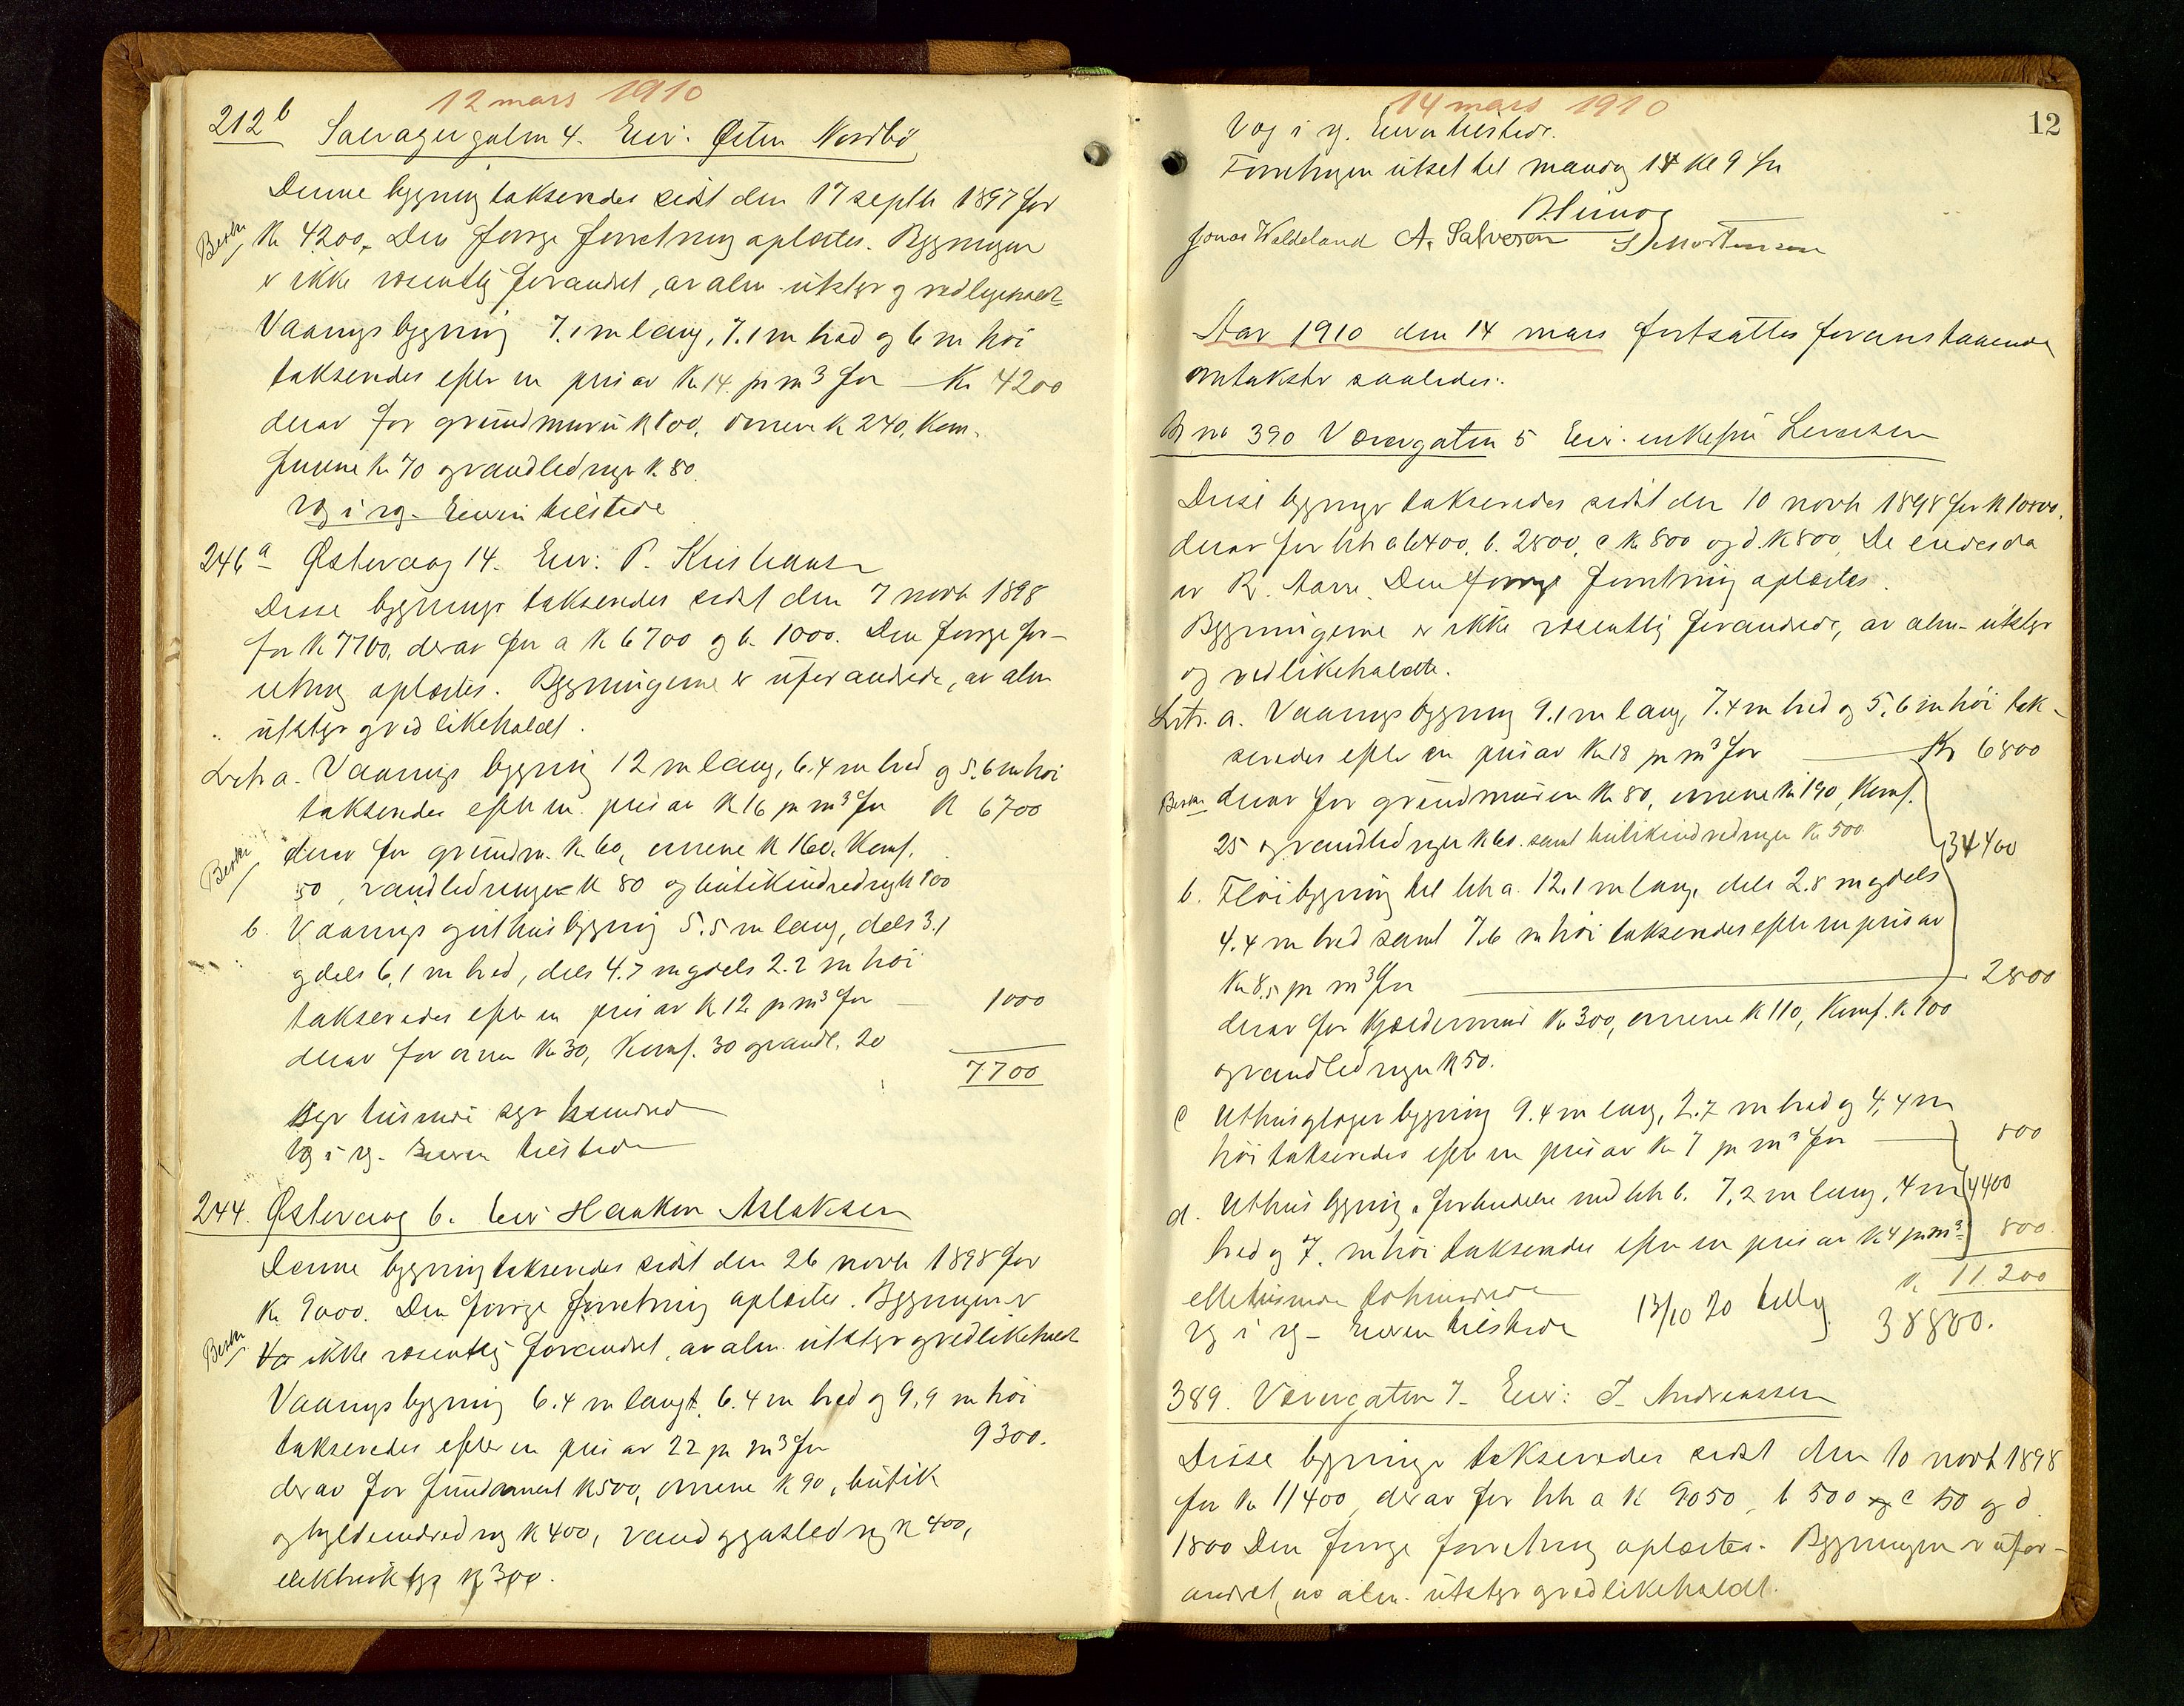 12 mars 1910
212 b Salvagergaten 4. Eier: Nordbø
Denne bygning takseredes sidst den 17 septbr 1897 for
Kr 4200. Den forrige forretning oplæstes. Bygningen
er ikke væsentlig forandret, av alm. utstyr og vedlikeholdt
Vaanings bygning 7.1 m lang, 7.1 m bred og 6 m høi
takseredes efter en pris av Kr 14 pr m3 for — Kr 4200
derav for grundmuren K 100, ovnene K 240, Kom-
furene Kr 70 og vandledninger K 80
Vog i rg. Eieren tilstede
246 a Østervaag 14. Eier: P. Kristiansen
Disse bygninger takseredes sidst den 7 novb 1898
for K 7700, derav for a K 6700 og b. 1000. Den forrige for-
retning oplæstes. Bygningerne er uforandrede, av alm
utstyr og vedlikeholdt.
Litr a. Vaanings bygning 12 m lang, 6.4 m bred og 5.6 m høi
takseredes efter en pris av K 16 pr m3 for K 6700
derav for grundm. K 60, ovnene K 160, Komf.
50, vandledninger K 80 og butikindredning K 100
b. Vaanings og uthusbygning 5.5 m lang, dels 3.1
og dels 6,1 m bred, dels 4.7 m og dels 2.2 m høi
takseredes efter en pris av K 12 pr m3 for — 1000
derav for ovnen Kr 30, Komf. 30 og vandl. 20
7700
Vog i rg. Eieren tilstede
244. Østervaag 6. Eier Haakon Aslaksen
Denne bygning takseredes sidst den 26 novbr 1898 for
Kr 9000. Den forrige forretning oplæstes. Bygningen er
ikke væsentlig forandret, av alm. utstyr og vedlikeholdt
Vaanings bygning 6.4 m langt, 6.4 m bred og 9,9 m høi
takseredes efter en pris av 22 pr m3 for 9300.
derav for fundament K 500, ovnene K 90, butik
og hyldeindredning K 400, vand og gasledning K 400,
elektrisk lys K 300.
14 mars 1910
12
Vog i rg. Eieren tilstede.
Forretningen utsat til mandag 14 kl 9 fm
Jonas Waldeland A. Salvesen S Mortensen
Aar 1910 den 14 mars fortsattes foranstaaende
omtakster saaledes:
Br no 390 Værvegaten 5 Eier. enkefru
Disse bygninger takseredes sidst den 10 novb 1898 for K 10800,
derav for litr a 6400, b. 2800, c Kr 800 og d. K 800. De eiedes da
av R. Aarre. Den forrige forretning oplæstes.
Bygningerne er ikke væsentlig forandrede, av alm. utstyr
og vedlikeholdte.
Litr. a. Vaaningsbygning 9.1 m lang, 7.4 m bred og 5,6 m høi tak-
seredes efter en pris av Kr 18 pr m3 for — Kr 6800
derav for grundmuren Kr 80, ovnene Kr 190, Komf.
25 og vandledninger K 60. samt butikindredninger Kr 500
34400
b. Fløibygning til litr a. 12.1 m lang, dels 2.8 m og dels
4.4 m bred samt 7.6 m høi takseredes efter en pris av
Kr 8.5 pr m3 for — 2800
derav for Kjældermur Kr 300, ovnene K 110, Komf. K 100
og vandledninger K 50.
c Uthus og lagerbygning 9.4 m lang, 2.7 m bred og 4,4 m
høi takseredes efter en pris av Kr 7 pr m3 for — 800
d. Uthusbygning i forbindelse med litr b. 7,2 m lang, 4 m 4400
bred og 7. m høi takseredes efter en pris av K 4 pr m3 800
K. 11.200
Vog i rg — Eieren tilstede 13/10 20 38880.
389. Værvegaten 7. Eier: J. Andreassen
Disse bygninger takseredes sidst den 10 novb 1898
for Kr 11400, derav for litr a K 9050, b 500 og c 50 og d
1800 Den forrige forretning oplæstes. Bygningen er ufor-
andret, av alm. utstyr og vedlikeholdt.